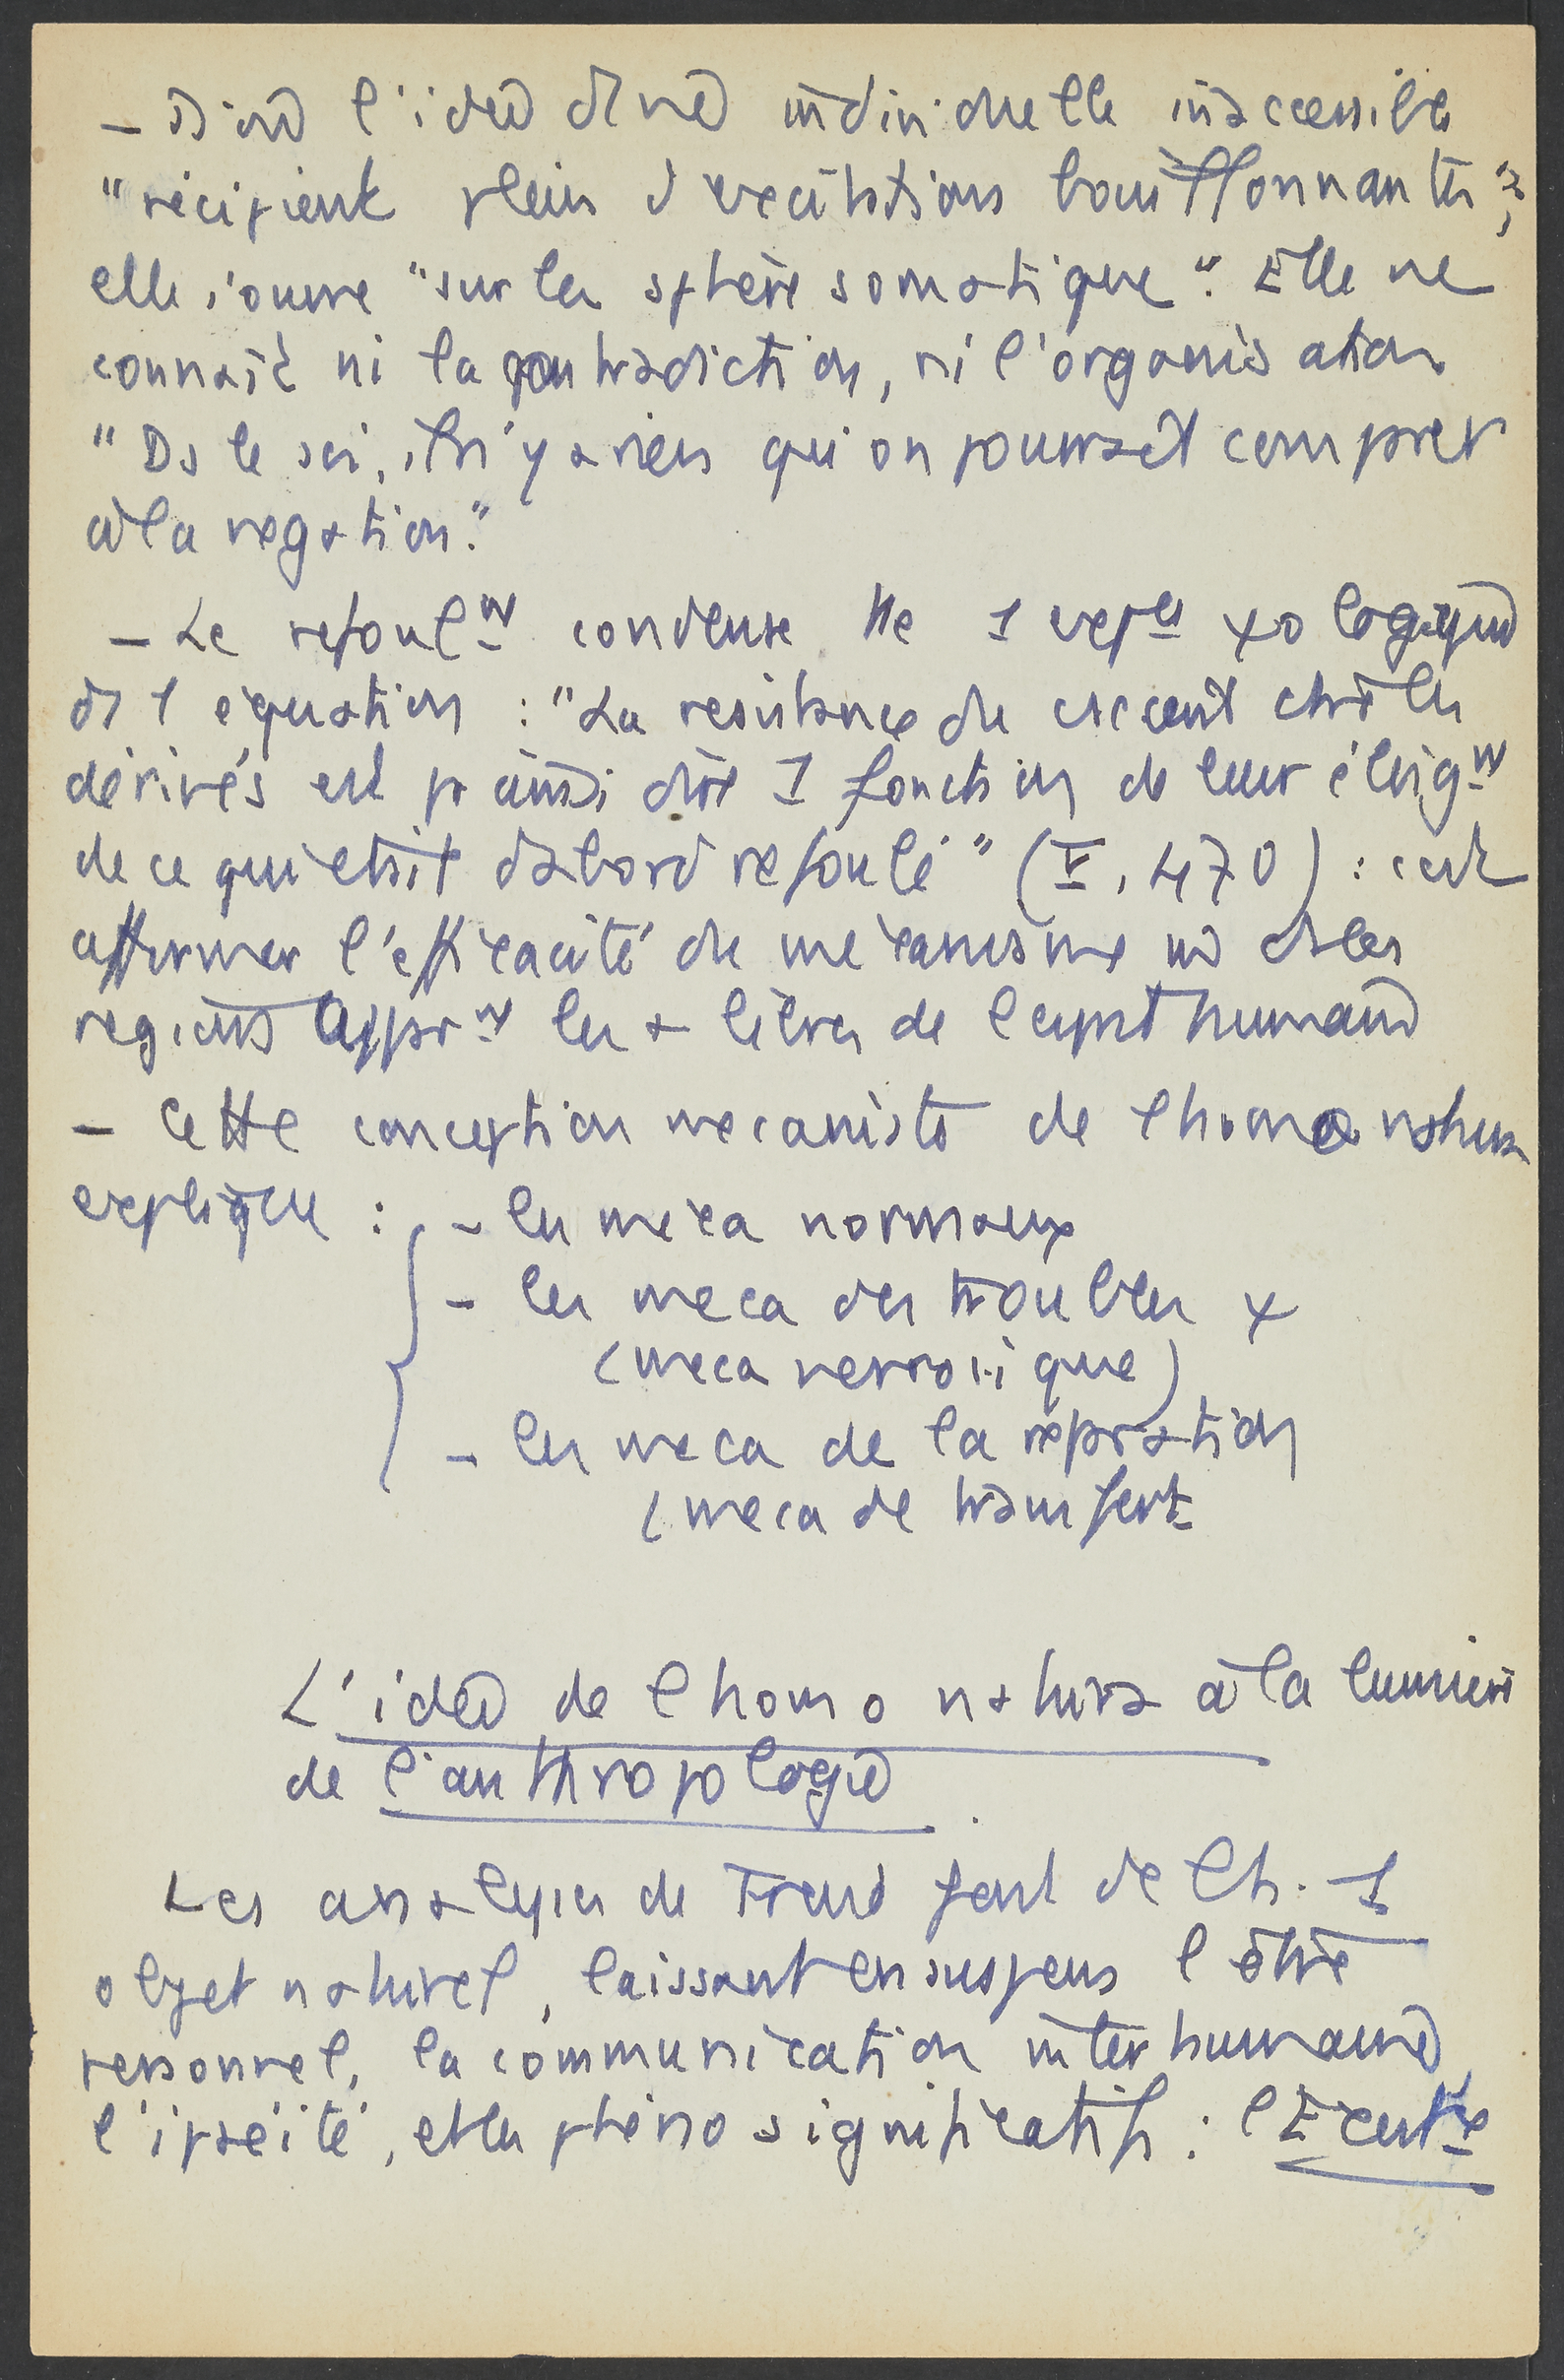 – D'où l'idée d'une individuelle inaccessible
"récipient plein d'excitations bouillonnantes",
elle s'ouvre "sur la sphère somatique". Elle ne
connaît ni la contradiction, ni l'organisation
"Ds le soi, il n'y a rien qu'on pourrait comparer
à la négation."
– Le refoulᵗ condense tte 1 ψologique
ds 1 équation : "La résistance du cscient ctre les
dérivés est pr ainsi dire 1 fonction de leur éloigᵗ
de ce qui était d'abord refoulé" (V, 470) : c'est
affirmer l'efficacité du mécanisme ds les
régions apparᵗ les + libres de l'esprit humain
– Cette conception mécaniste de l'homo natura
explique : – les méca normaux
– les méca des troubles ψ
(méca névrotique)
– les méca de la réparation
(méca de transfert
L'idée de l'homo natura à la lumière
de l'anthropologie
Les analyses de Freud font de l'h. 1
objet naturel, laissant en suspens l'être
personnel, la communication interhumaine,
l'ipséité, et les phéno significatifs : l'Existce